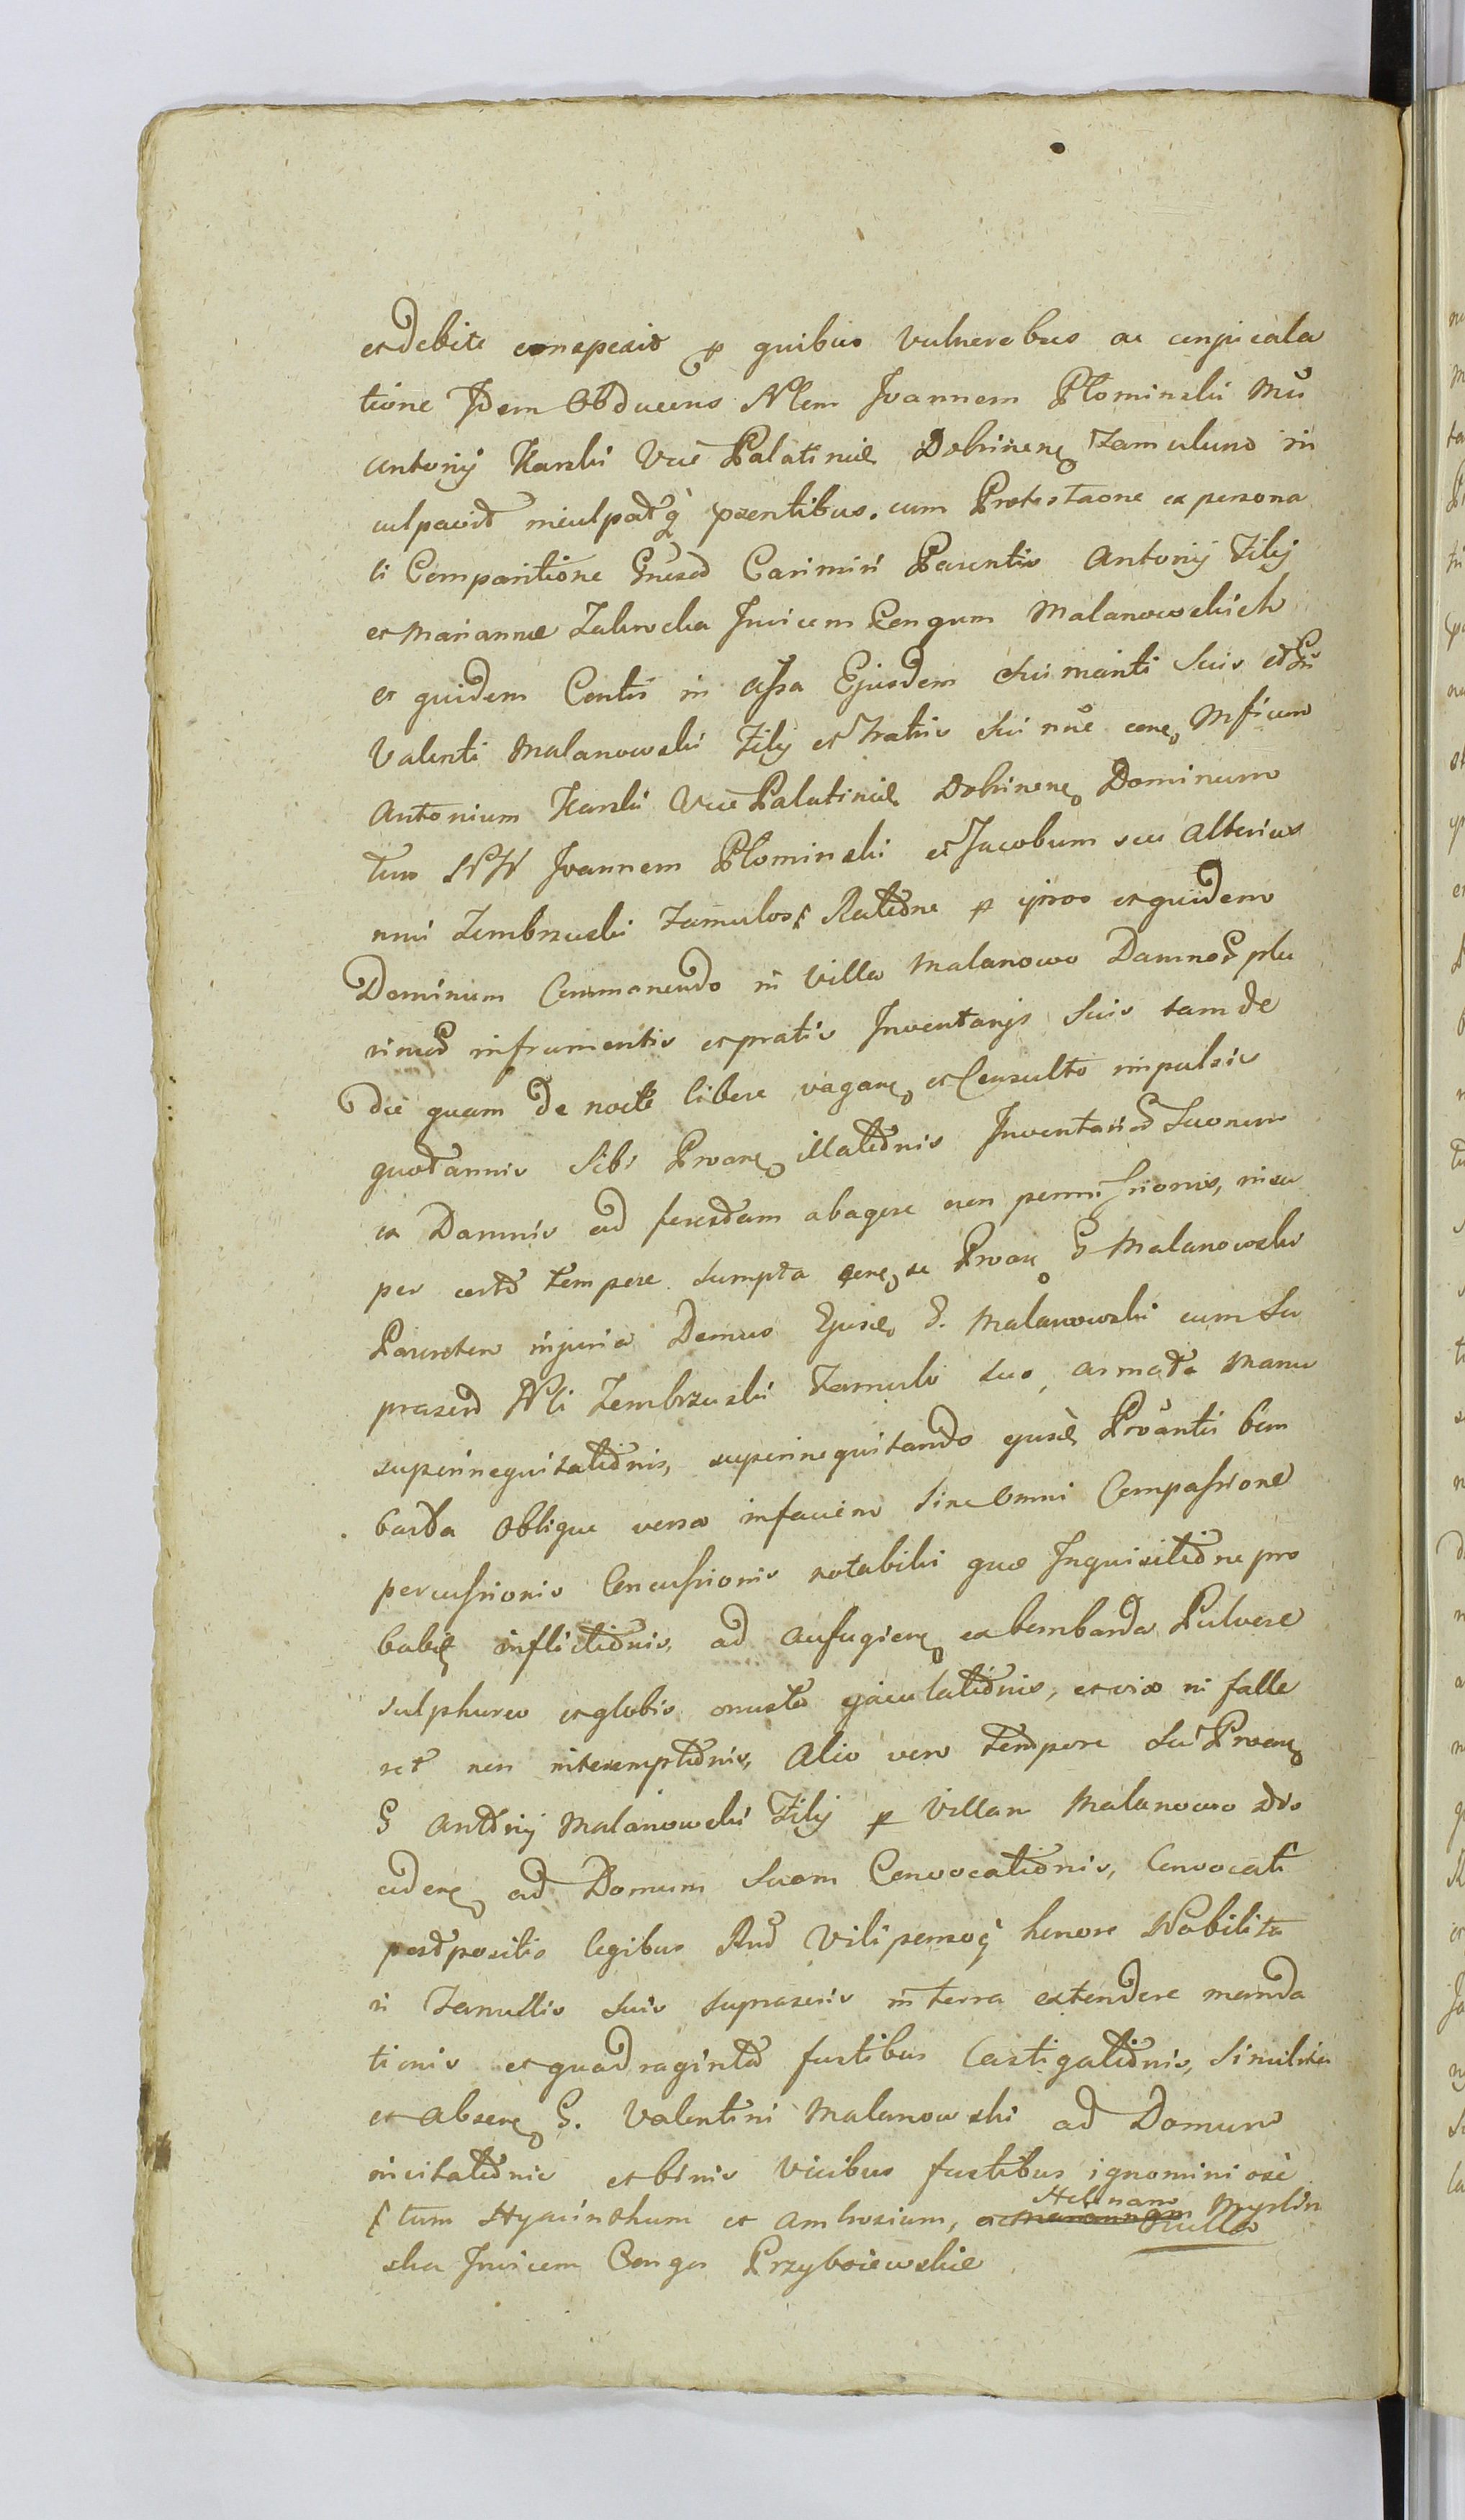 et debite conspexit p quibus vulneribus ac conspicala
tione Idem Obducens Nlem Joannem Płominski Mci
Antonij Karski Vice Palatini Dobrinen Famulum in
culpavit inculpatq pzentibus. cum Protestaone ex persona
li Comparitione Gnesod Casimiri Parentis Antonij Filij
et Mariannae Zakrocka Invicem Congum Malanowskich
et quidem Contis in assa Ejusdem sui mariti Suis et G
Valenti Malanowski Filij et Fratris sui nne cone Mficum
Antonium Karski Vice Palatinii Dobrinen Dominum
tum NN Joannem Płominski et Jacobum seu Alterius
nni Zembrzuski Famulos Ratione p ipsos et quidem
Dominum Commonendo in Villa Malanowo Damnos plu
rimos in frumentis et pratis Inventarijs Suis tam de
die quam de nocte libere vagare et Consulto impulsis
quotannis Sibi Proane illationis Inventariod Suorum
ex Damnis ad feresdam abagere non permissionis, in su
per certo tempore sumpta gene se Proane G Malanowski
Parenten injuria Domus Ejusde G. Malanowski cum Su
praserd Nli Zembrzuski Famulo suo, armata Manu
superinequitationis, superinequitando ejusde Proantis bom
barda oblique versa in faciem Sine Omni Compassione
percussionis Concussionis notabilis quae Inquisitione pro
babit inflictionis, ad aufugiene ex bombarda Pulvere
sulphureo et globis onusta ejaculationis, et vix ni falle
ret non interemptionis, Alio vero tempore Sui Proane
G Antonij Malanowski Filij p Villam Malanowo
adere ad Domum Suam Convocationis, Convocati
postpositis legibus Rnd Vilipensoq honore Nobilita
ri Famullis suis supraseris in terra extendere manda
tionis et quadraginta fustibus Castigationis, Similiter
et absene G. Valentini Malanowski ad Domum
incitationis et binis Vicibus fustibus ignominiose
tum Hyacinthum et Ambrosium, ac Mariannam Helenam Myslin
ska Invicem Conges Przybojewskie